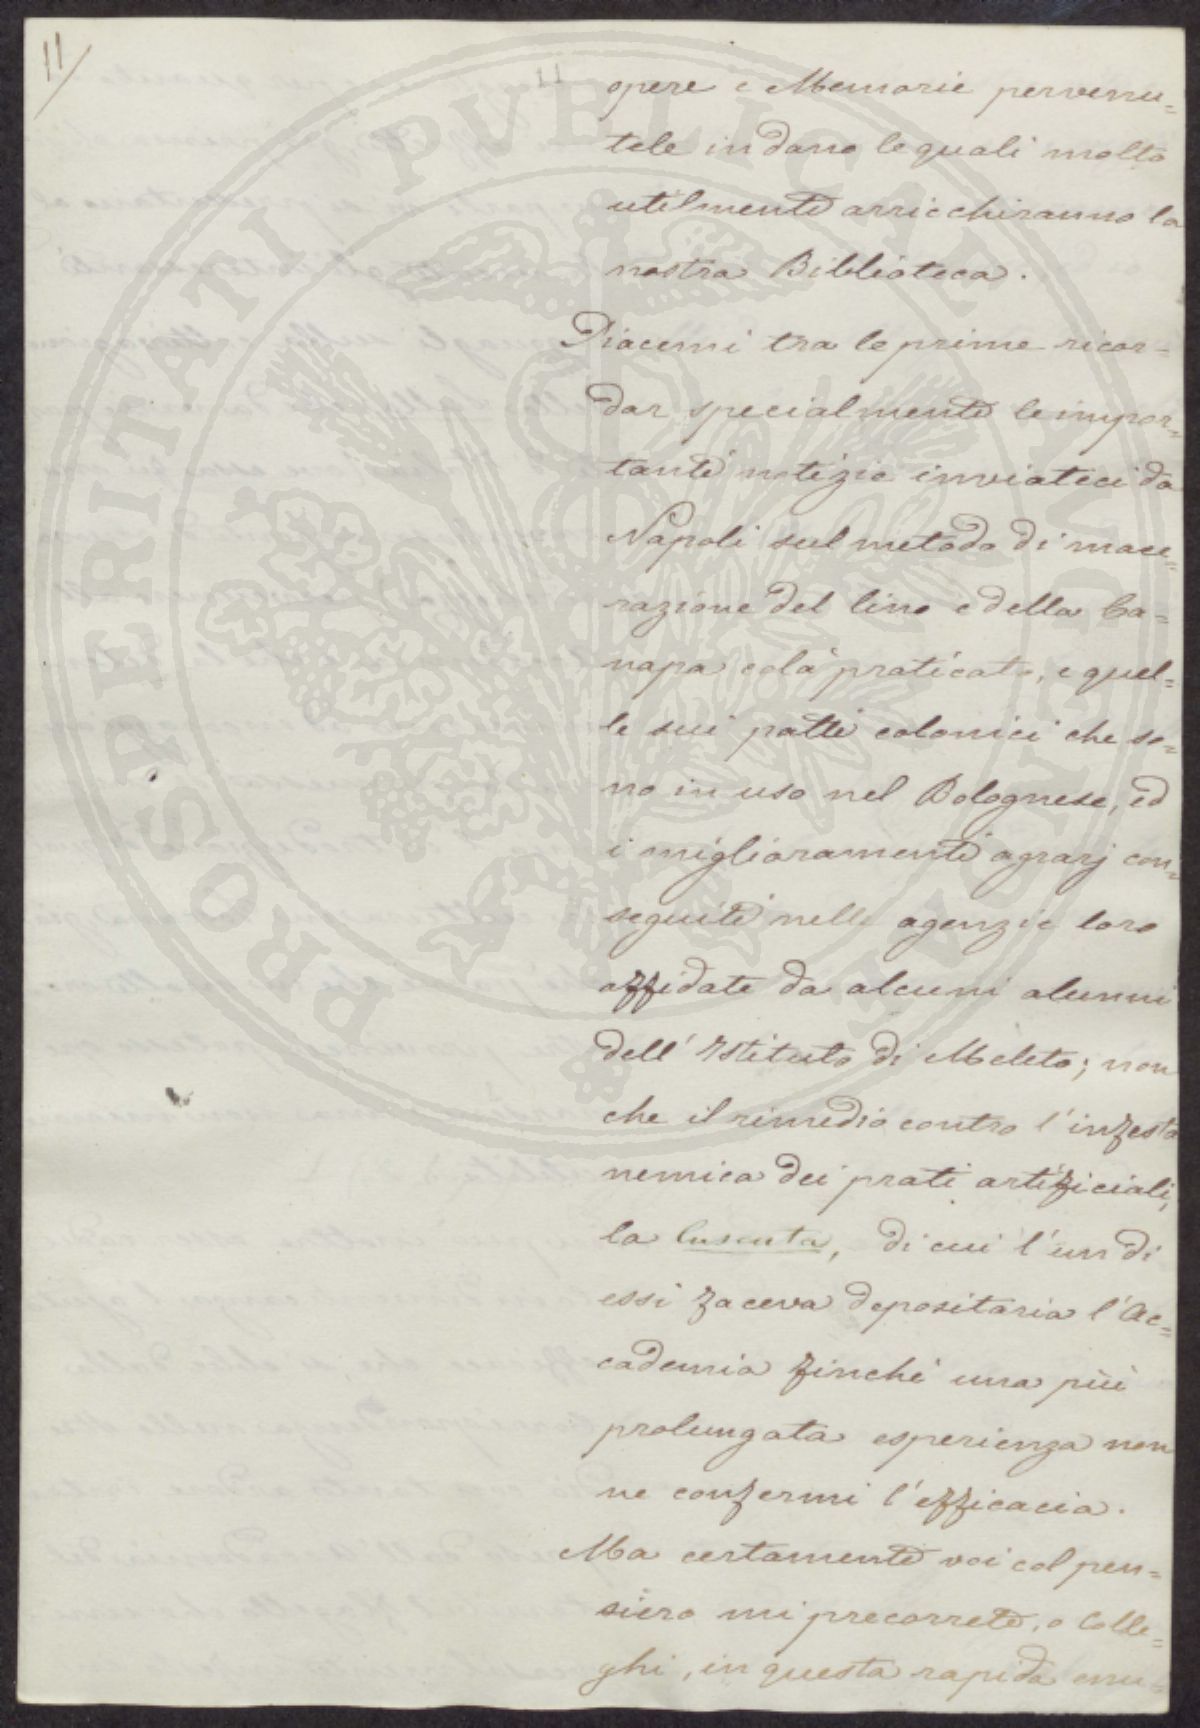 11
11
opere e Memorie pervenu=
tele in dono le quali molto
utilmente arricchiranno la
nostra Biblioteca.
Piacemi tra le prime ricor=
dar specialmente le impor=
tanti notizie inviateci da
Napoli sul metodo di mace=
razione del lino e della Ca=
napa colà praticato, e quel=
le sui patti colonici che so=
no in uso nel Bolognese, ed
i miglioramenti agrarj con=
seguiti nelle agenzie loro
affidate da alcuni alunni
dell'Istituto di Meleto; non
che il rimedio contro l'infesta
nemica dei prati artificiali,
la Cuscuta, di cui l'un di
essi faceva depositaria l'Ac=
cademia finchè una più
prolungata esperienza non
ne confermi l'efficacia.
Ma certamente voi col pen=
siero mi precorrete, o Colle=
ghi, in questa rapida enu=
PROSPERITATI PUBLICAE AUGENDAE